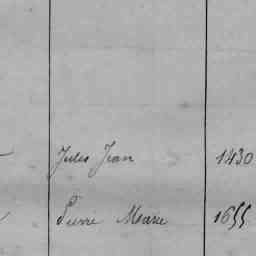 Jules Jean 1430
Pierre Marie 1655